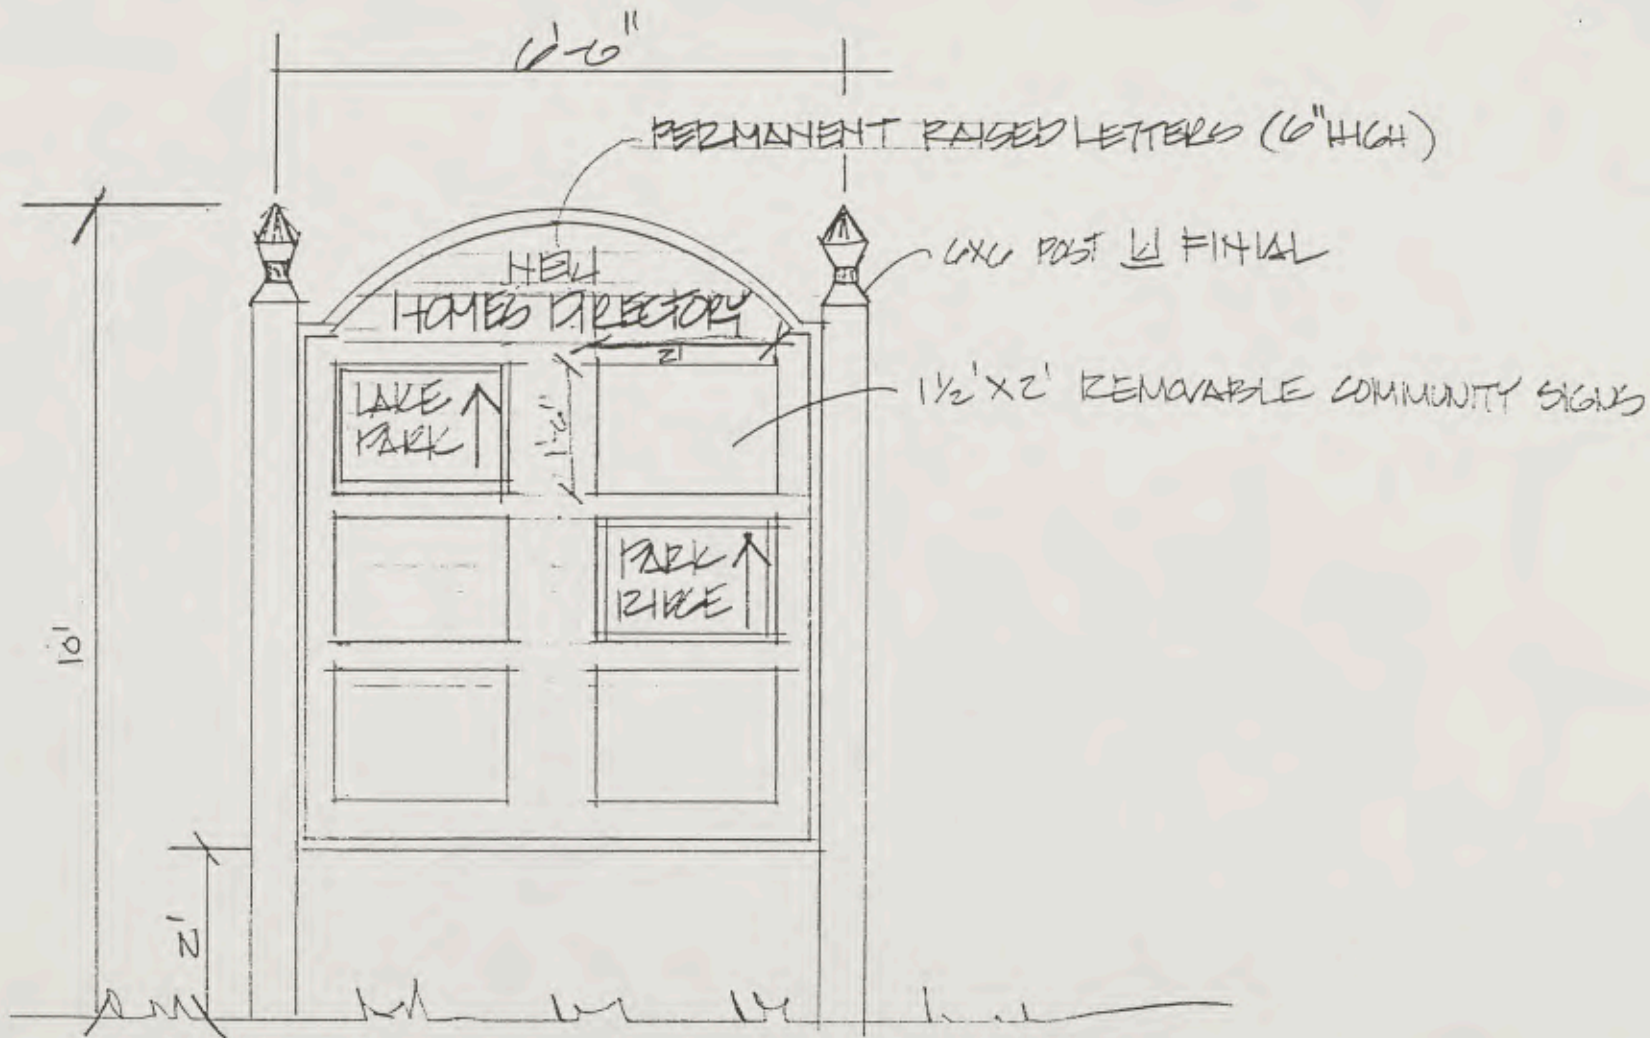 6'-6"
PERMANENT RAISED LETTERS (6" HIGH)
6X6 POST W FINIAL
NEW
HOMES DIRECTORY
2'
1½' X 2' REMOVABLE COMMUNITY SIGNS
LAKE
PARK
1'-6"
PARK
RIDGE
10'
2'